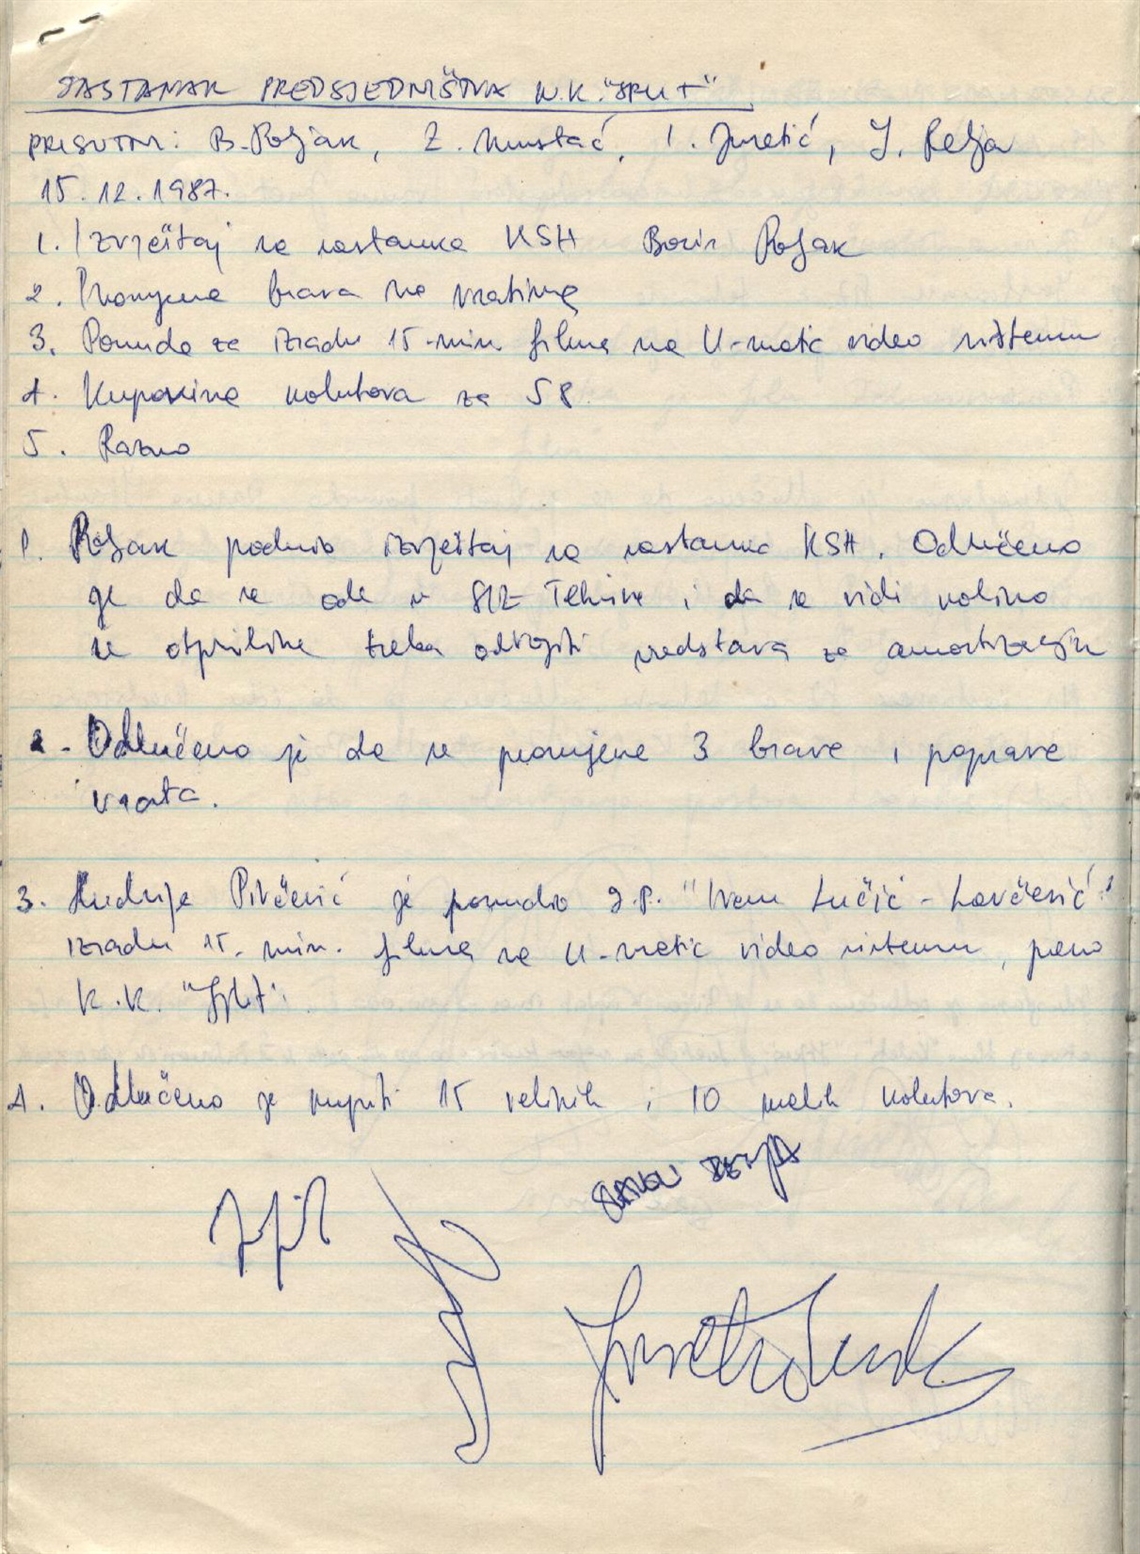 SASTANAK PREDSJEDNIŠTVA K.K. "SPLIT"
PRISUTNI: B. Poljak, Z. Mustać, I. Juretić, J. Relja
15.12.1987.
1. Izvještaj sa sastanka KSH Boris Poljak
2. Promjena brava na vratima
3. Ponuda za izradu 15-min. filma na U-matic video sistemu
4. Kupovina kolutova za S8
5. Razno
1. Poljak podnio izvještaj sa sastanka KSH. Odlučeno
je da se ode u SIZ Tehnike i da se vidi koliko
se otprilike treba odvojiti sredstava za amortizaciju
2. Odlučeno je da se promijene 3 brave i poprave
vrata.
3. Andrija Pivčević je ponudio "Ivan Lučić-Lavčević"
izradu 15. min. filma na U-matic video sistemu, preko
K.K. "Split".
4. Odlučeno je kupiti 15 velikih i 10 malih kolutova.